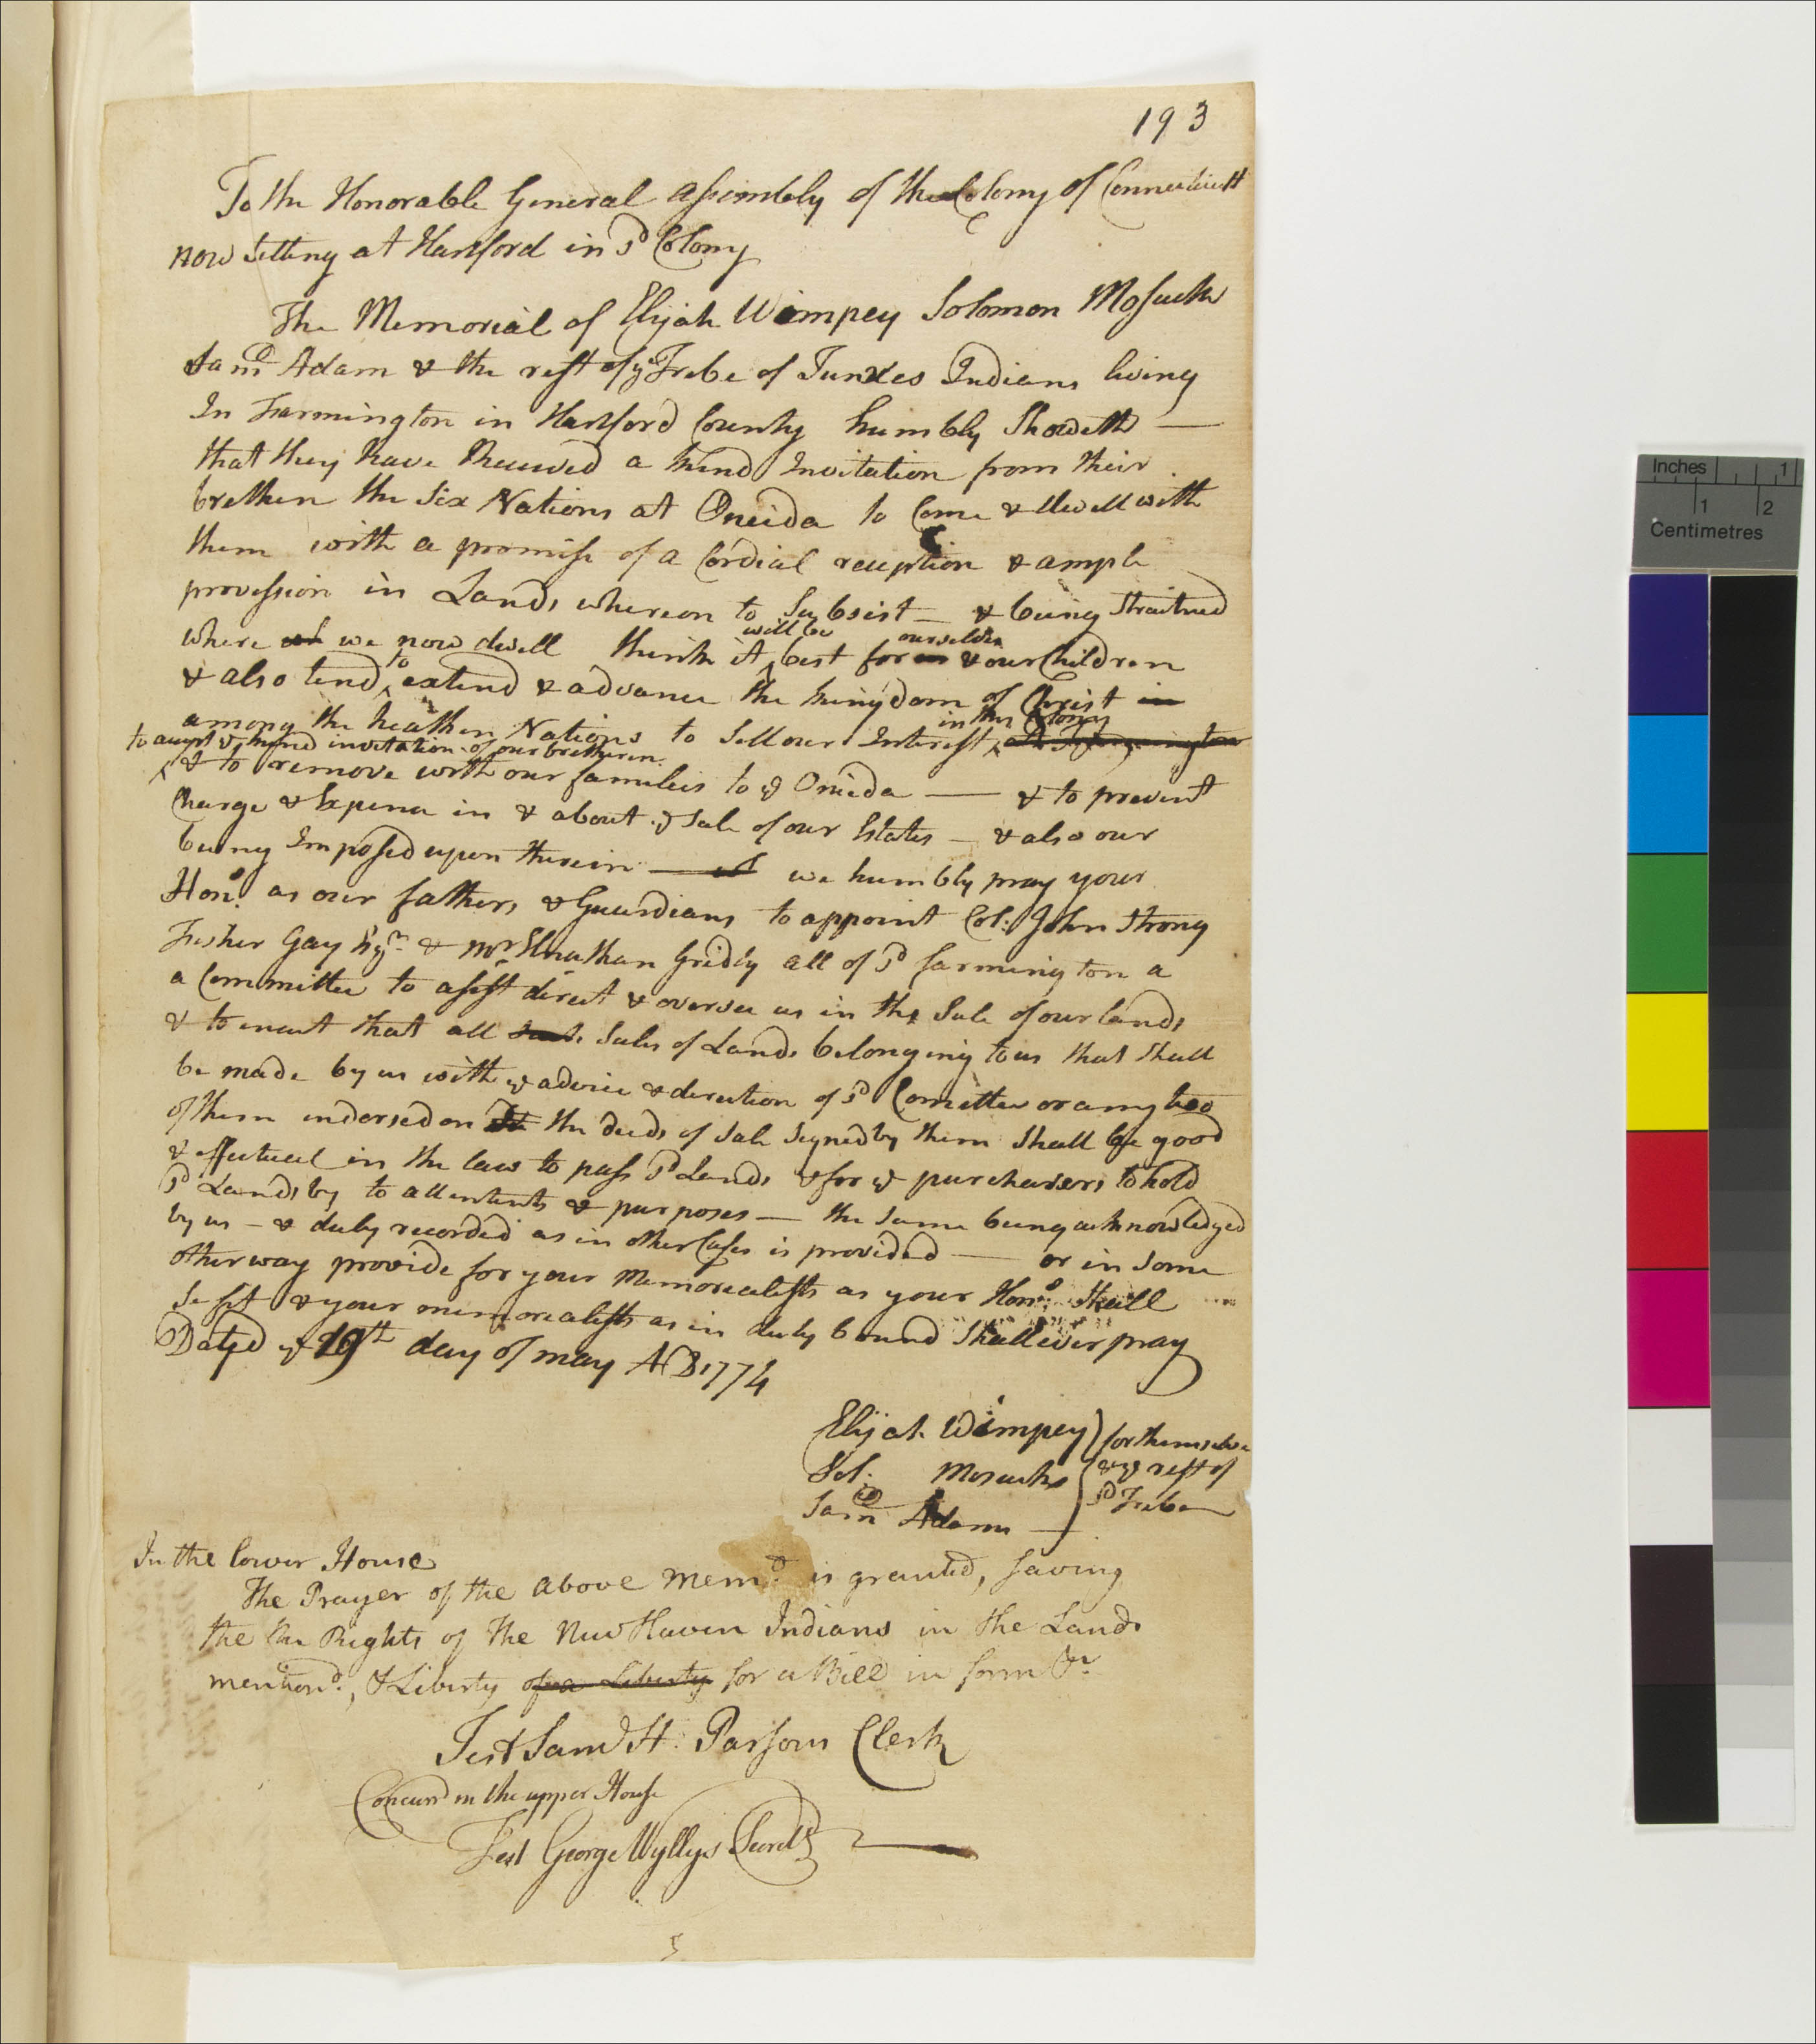 193
To the Honorable General Assembly of the Colony of Connecticutt
now Setting at Hartford in sd Colony
The Memorial of Elijah Wimpey Solomon Mosuck
Samll Adam & the rest of ye Tribe of Tunxes Indians living
In Farmington in Hartford County humbly Sheweth —
that they have Received a kind Invitation from their
brethen the Six Nations at Oneida to Come & dwell with
them with a promise of a Cordial reception & ample
provession in Lands whereon to Subsist — & being Straitned
where we now dwell think it will be best for ourselves & our Children
& also tend to extend & advance the kingdom of Christ in
among the heathen Nations to Sell our Interest in this Colony at Farmington
to accept ye kind invitation of our bretheren
& to remove with our families to ye Oneida — & to prevent
Charge & Expence in & about ye Sale of our Estates — & also our
being Imposed upon therein — we humbly pray your
Honrs as our fathers & Guardians to appoint Col: John Strong
Fisher Gay Esqr & mr Elnathan Gridly all of sd farmington a
a Committee to assist direct & oversee us in the Sale of our lands
& to enact that all Sales of Lands belonging to us that Shall
be made by us with ye advice & direction of sd Comittee or any two
of them indorsed on the deeds of Sale Signed by them Shall be good
& effectual in the law to pass sd Lands & for ye purchasers to hold
sd Lands by to all intents & purposes — the Same being acknowledged
by us — & duly recorded as in other Cases is provided — or in Some
other way provide for your Memorealists as your Honrs Shall
Se fit & your memorealists as in duty bound Shall ever pray
Dated ye 19th day of may AD 1774
Elijah Wimpey
Sol: Mosucks
Samll Adams
for themselves
& ye rest of
sd Tribe
In the Lower House
The Prayer of the above Meml is granted, saving
the Rights of the New Haven Indians in the Lands
mentiond, & Liberty of a Liberty for a Bill in form &c
Test Saml H. Parsons Clerk
Concurd in the upper House
Test George Wyllys Secrety
Inches 1
1 2
Centimetres